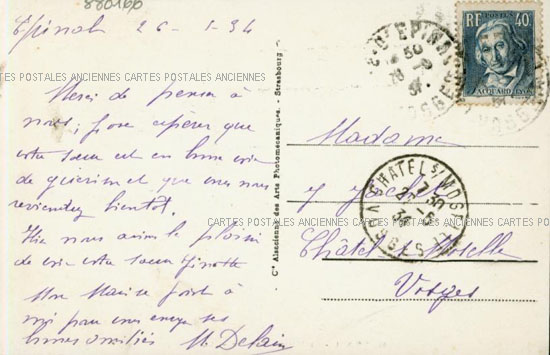 880166
Epinal 26 - 8 - 34
POSTES
RF 40c
JACQUARD.LYON
EPINAL
VOSGES
CARTES POSTALES ANCIENNES CARTES POSTALES ANCIENNES CARTES POSTALES ANCIENNES
Merci de penser à
nous; j'ose espérer que
votre sœur est en bonne voie
de guérison et que vous nous
reviendrez bientôt.
nous avons le plaisir
de voir votre sœur Ginette
à
pour vous envoyer ses
bonnes amitiés M. Delain
Cie Alsacienne des Arts Photomécaniques. - Strasbourg.
Madame
CHATEL S/ MOSELLE
VOSGES
Châtel s/ Moselle
Vosges